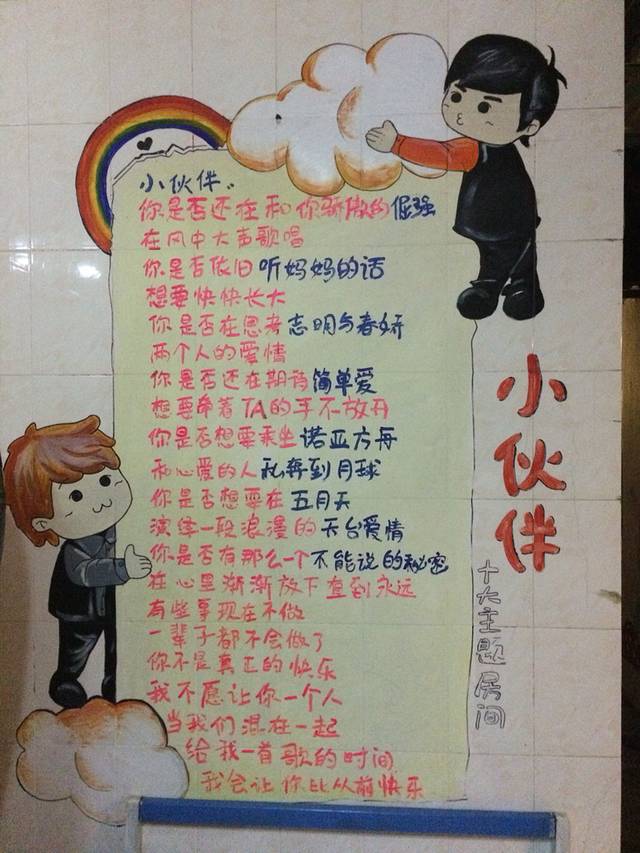 小伙伴、
你是否还在和你骄傲的倔强
在风中大声歌唱
你是否依旧听妈妈的话
想要快快长大
你是否在思考志明与春娇
两个人的爱情
你是否还在期待简单爱
想要牵着TA的手不放开
你是否想要乘坐诺亚方舟
和心爱的人私奔到月球
你是否想要在五月天
演绎一段浪漫的天台爱情
你是否有那么一个不能说的秘密
在心里渐渐放下直到永远
有些事现在不做
一辈子都不会做了
你不是真正的快乐
我不愿让你一个人
当我们混在一起
给我一首歌的时间
我会让你比从前快乐
小伙伴
十大主题房间